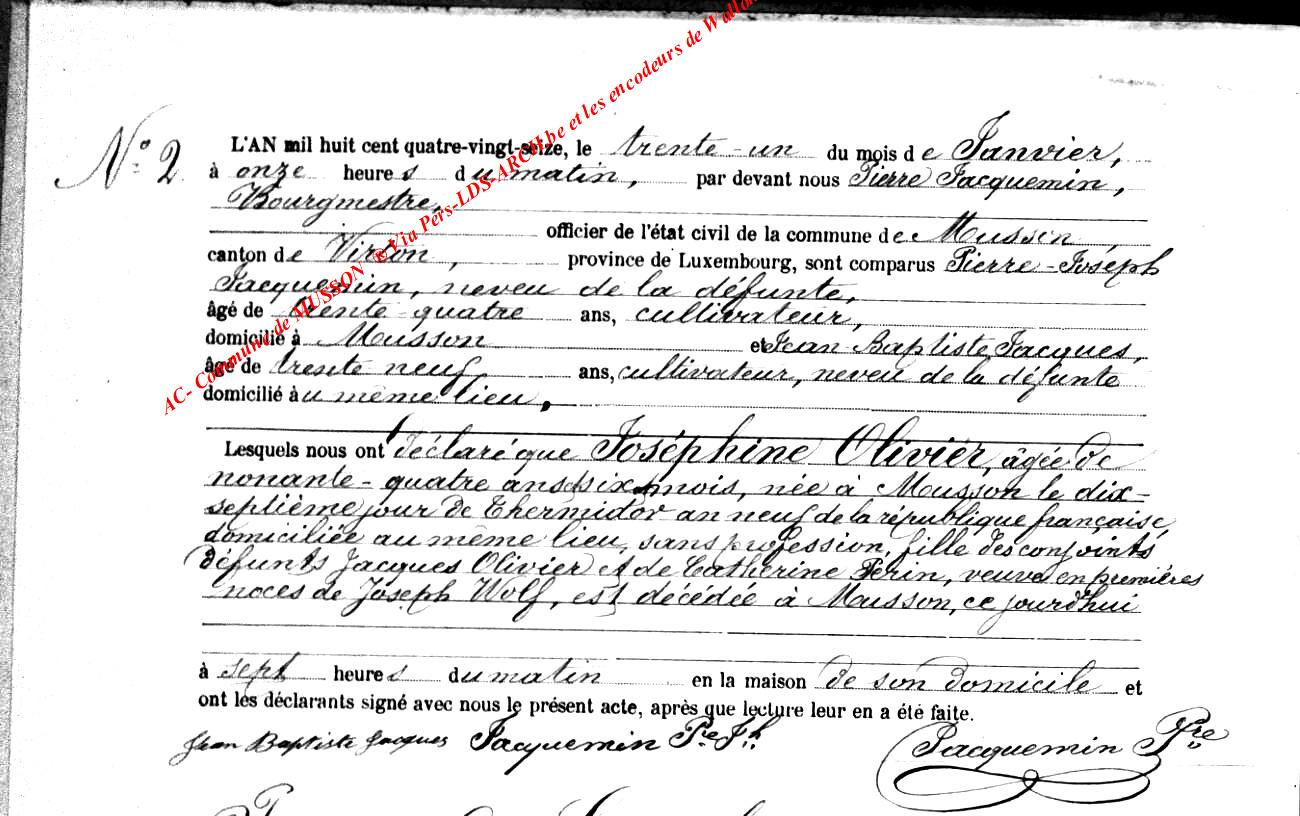 AC- Commune de MUSSON ® Via Pers-LDS-ARCH.be et les encodeurs de Wallon
N° 2
L'AN mil huit cent quatre-vingt-seize, le trente-un du mois de Janvier,
à onze heures du matin, par devant nous Pierre Jacquemin,
Bourgmestre,
officier de l'état civil de la commune de Musson,
canton de Virton, province de Luxembourg, sont comparus Pierre-Joseph
Jacquemin, neveu de la défunte,
âgé de trente quatre ans, cultivateur,
domicilié à Musson et Jean-Baptiste Jacques,
âgé de trente neuf ans, cultivateur, neveu de la défunte
domicilié au même lieu,
Lesquels nous ont déclaré que Joséphine Olivier, âgée de
nonante-quatre ans six mois, née à Musson le dix-
septième jour de Thermidor an neuf de la république française,
domiciliée au même lieu, sans profession, fille des conjoints
défunts Jacques Olivier et de Catherine Perin, veuve en premières
noces de Joseph Wolf, est décédée à Musson, ce jourd'hui
à sept heures du matin en la maison de son domicile et
ont les déclarants signé avec nous le présent acte, après que lecture leur en a été faite.
Jean Baptiste Jacques Jacquemin Pre Jh Jacquemin Pre